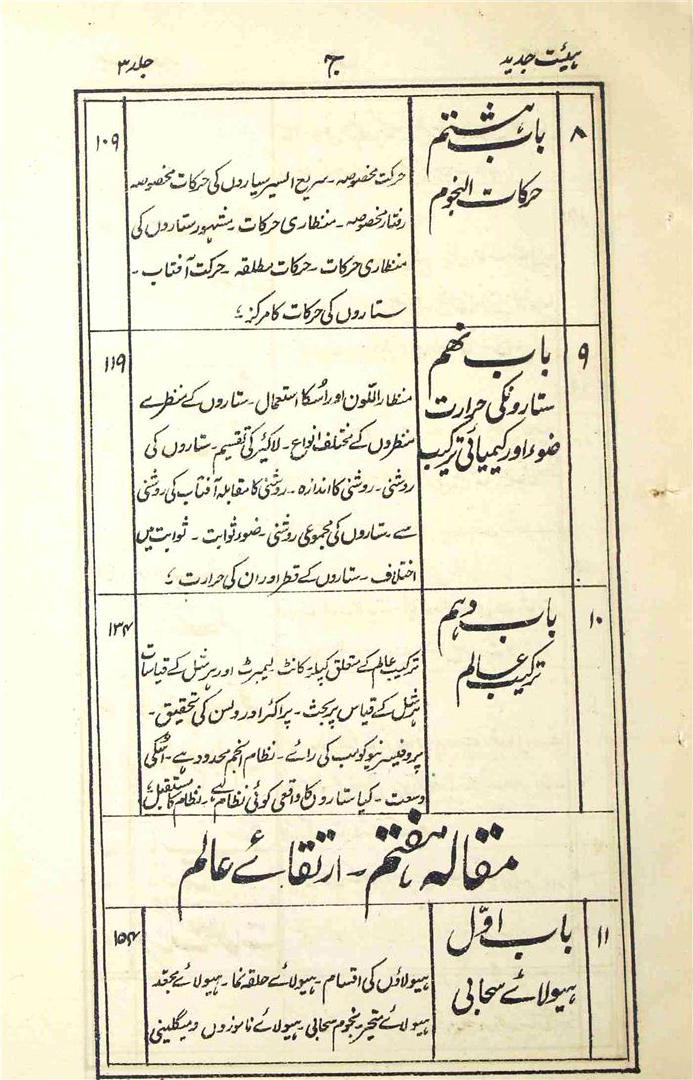 ہیئت جدید
ج
جلد ۳
۸
باب ہشتم
حرکات النجوم
حرکت مخصوصہ۔ سریع السیر سیاروں کی حرکات مخصوصہ
رفتار مخصوصہ۔ منظاری حرکات۔ مشہور ستاروں کی
منظاری حرکات۔ حرکات مطلقہ۔ حرکت آفتاب۔
ستاروں کی حرکات کا مرکز؛
۱۰۹
۹
باب نہم
ستارونکی حرارت
ضوء اور کیمیائی ترکیب
منظار اللون اور اُسکا استعمال۔ ستاروں کے منظرے
منظروں کے مختلف انواع۔ لاکیئر کی تقسیم۔ ستاروں کی
روشنی۔ روشنی کا اندازہ۔ روشنی کا مقابلہ آفتاب کی روشنی
سے۔ ستاروں کی مجموعی روشنی۔ ضوء ثوابت۔ ثوابت میں
اختلاف۔ ستاروں کے قطر اور ان کی حرارت؛
۱۱۹
۱۰
باب دہم
ترکیب عالم
ترکیب عالم کے متعلق کپلر۔ کانٹ۔ لیمبرٹ اور ہرشل کے قیاسات
ہرشل کے قیاس پر بحث۔ پراکٹر اور ولسن کی تحقیق۔
پروفیسر نیوکومب کی رائے۔ نظام انجم محدود ہے۔ اسکی
وسعت۔ کیا ستاروں کا واقعی کوئی نظام ہے۔ نظام کا مستقبل؛
۱۳۴
مقالہ ہفتم۔ ارتقائے عالم
۱۱
باب اوّل
ہیولائے سحابی
ہیولاؤں کی اقسام۔ ہیولائے حلقہ نما۔ ہیولائے مجعّد
ہیولائے متحیر۔ نجوم سحابی۔ ہیولائے ناموزوں و میگلینی
۱۵۴